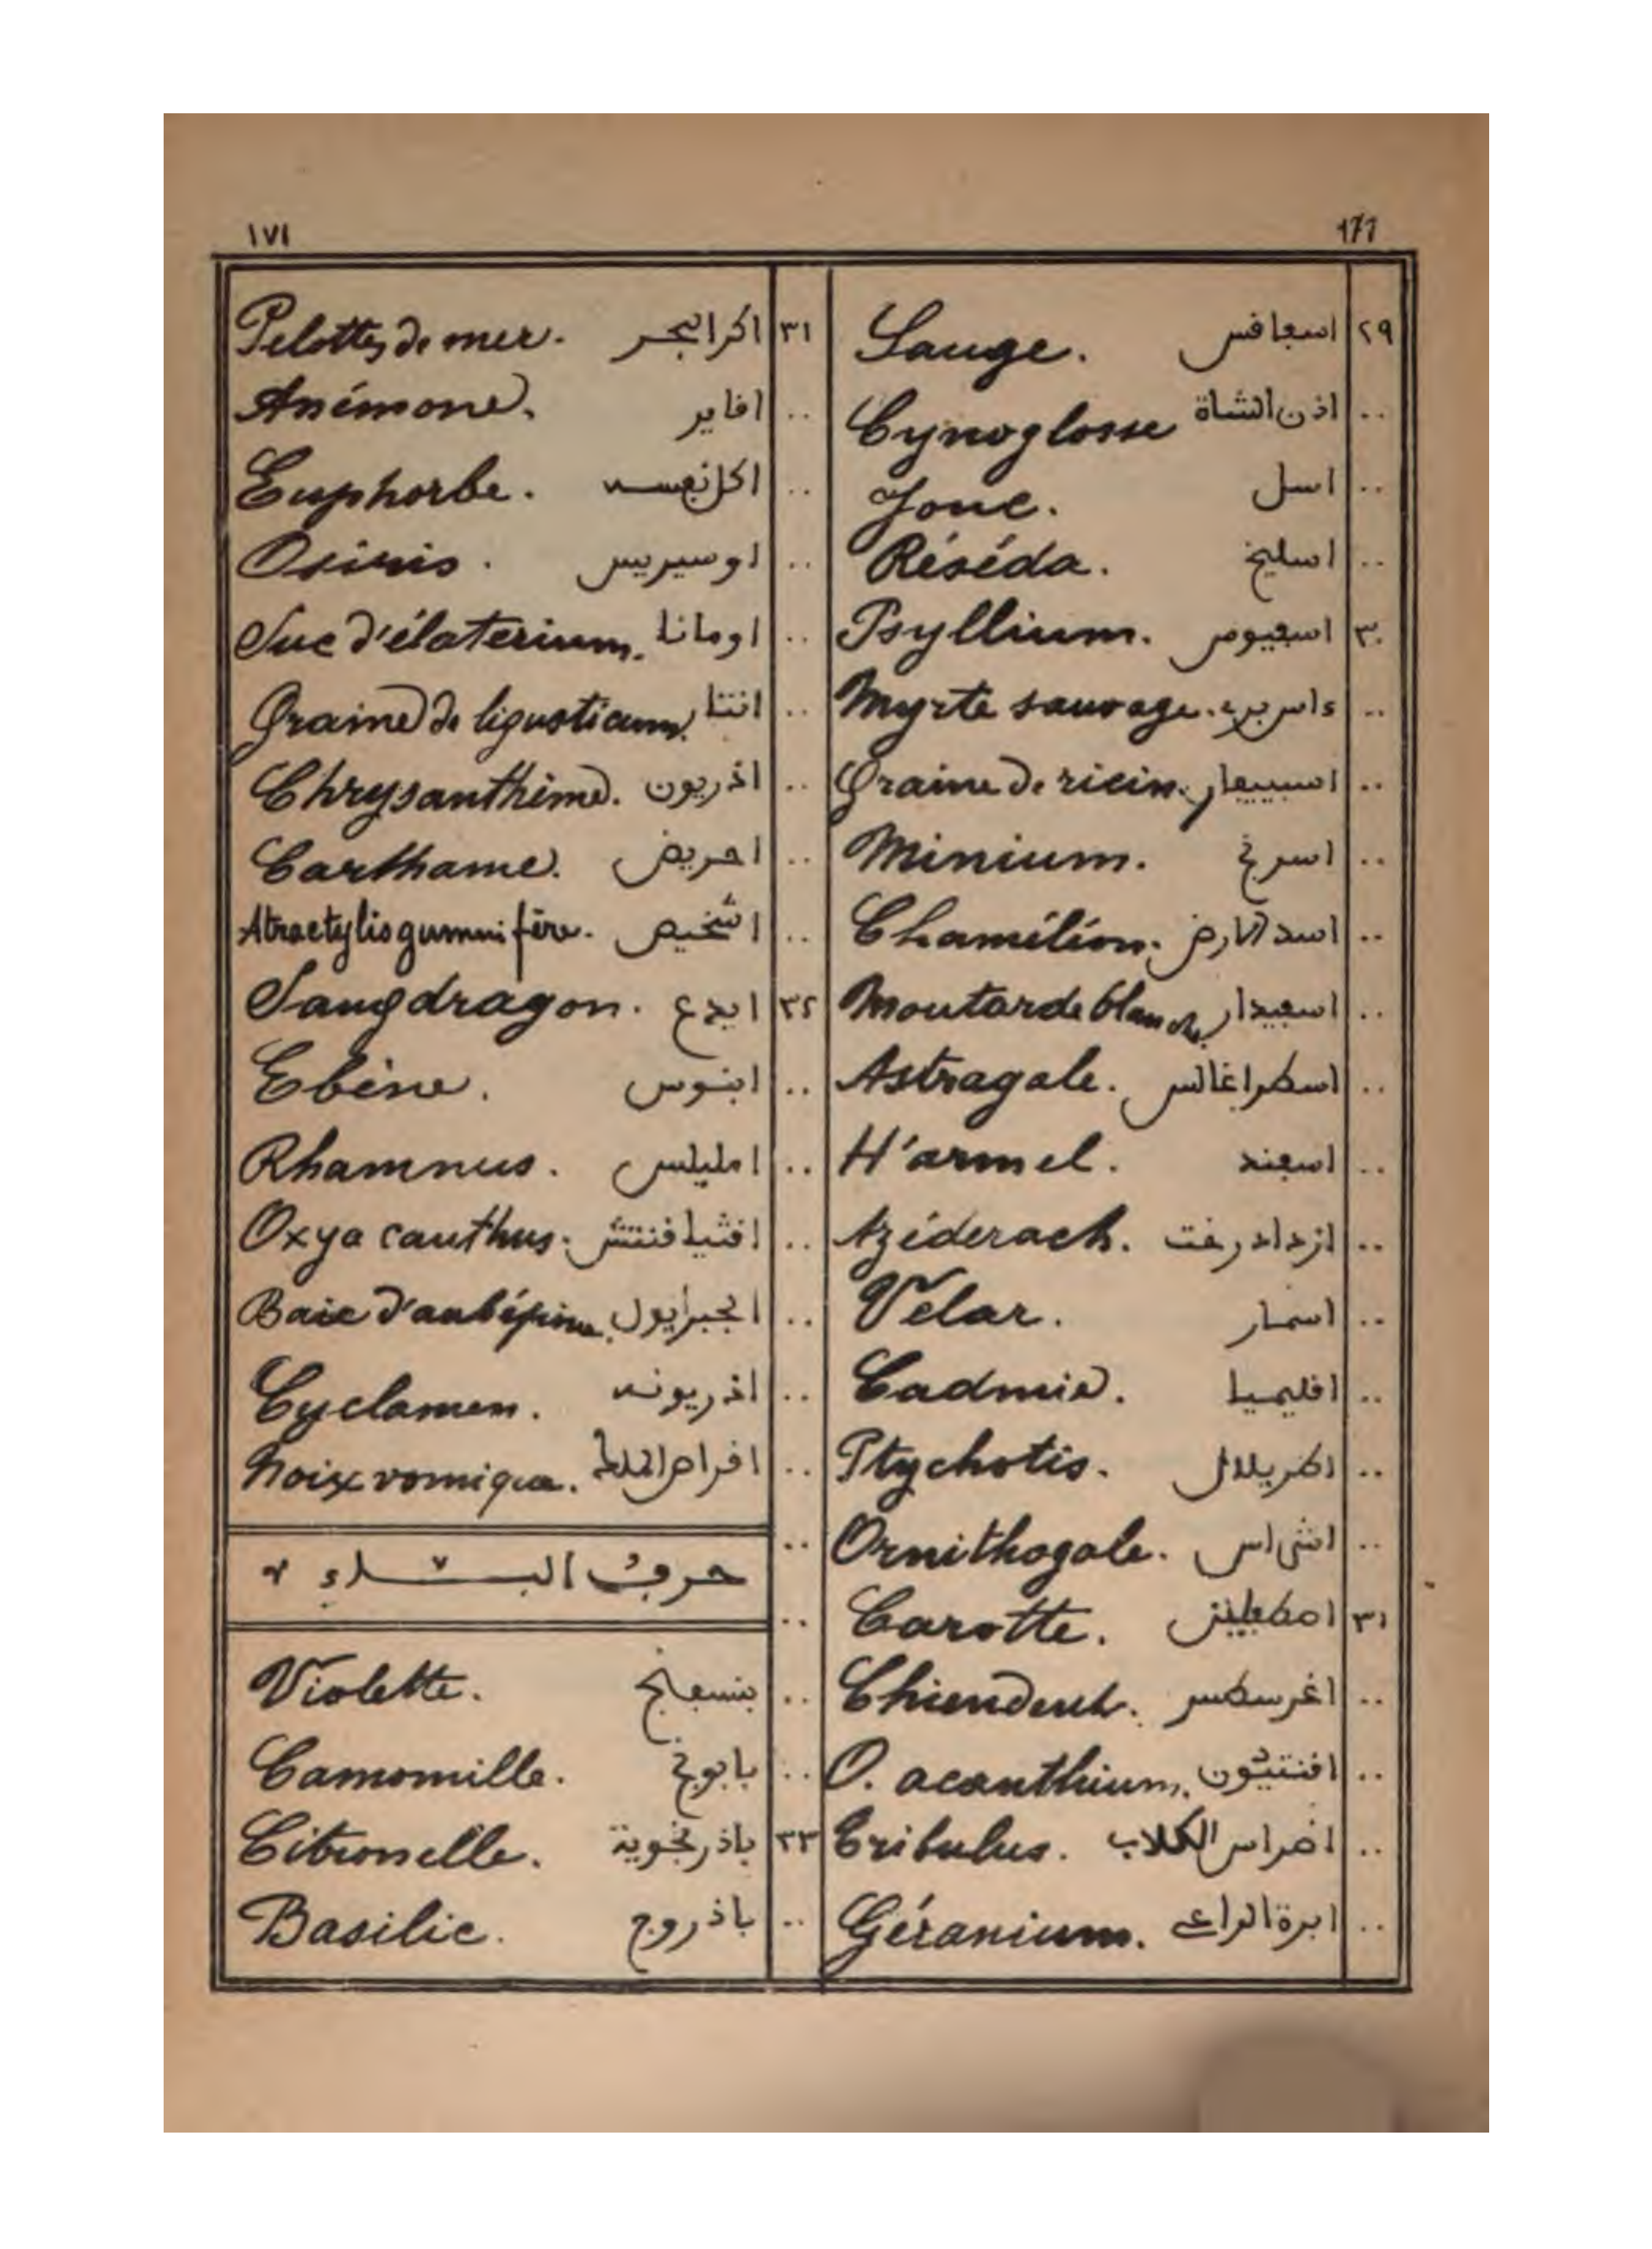 ١٧١
٢٩ اسعافس Sauge.
.. اذن الشاة Cynoglosse
.. اسل Jonc.
.. اسليخ Réséda.
٣٠ اسعيوس Psyllium.
.. ءاس برى Myrte sauvage.
.. Graine de ricin.
.. اسرنج Minium.
.. اسد الارض Chaméléon.
.. اسعيدار Moutarde blanche
.. اسطراغالس Astragale.
.. اسعند H'armel.
.. ازدادرخت Azéderach.
.. اسمار Vélar.
.. اقليميا Cadmie.
.. اطريلال Ptychotis.
.. اشراس Ornithogale.
٣١ اصطعلين Carotte.
.. اغرسطس Chiendent.
.. اقنتيون O. acanthium.
.. اضراس الكلاب Tribulus.
.. ابرة الراعى Géranium.
٣١ اكر البحر Pelottes de mer.
.. افاير Anémone.
.. اكل نعسه Euphorbe.
.. اوسيريس Osiris.
.. اومانا Suc d'élaterium.
.. انتا Graine de ligusticum.
.. اذريون Chrysanthème.
.. احريض Carthame.
.. اشخيص Atractylis gummifère.
٣٢ ايدع Sangdragon.
.. ابنوس Ebène.
.. امليلس Rhamnus.
.. Oxyacanthus.
.. Baie d'aubépine.
.. اذريونه Cyclamen.
.. Noix vomique.
حرف الباء
.. بنسعج Violette.
.. بابونج Camomille.
٣٣ باذرنجوية Citronelle.
.. باذروج Basilic.